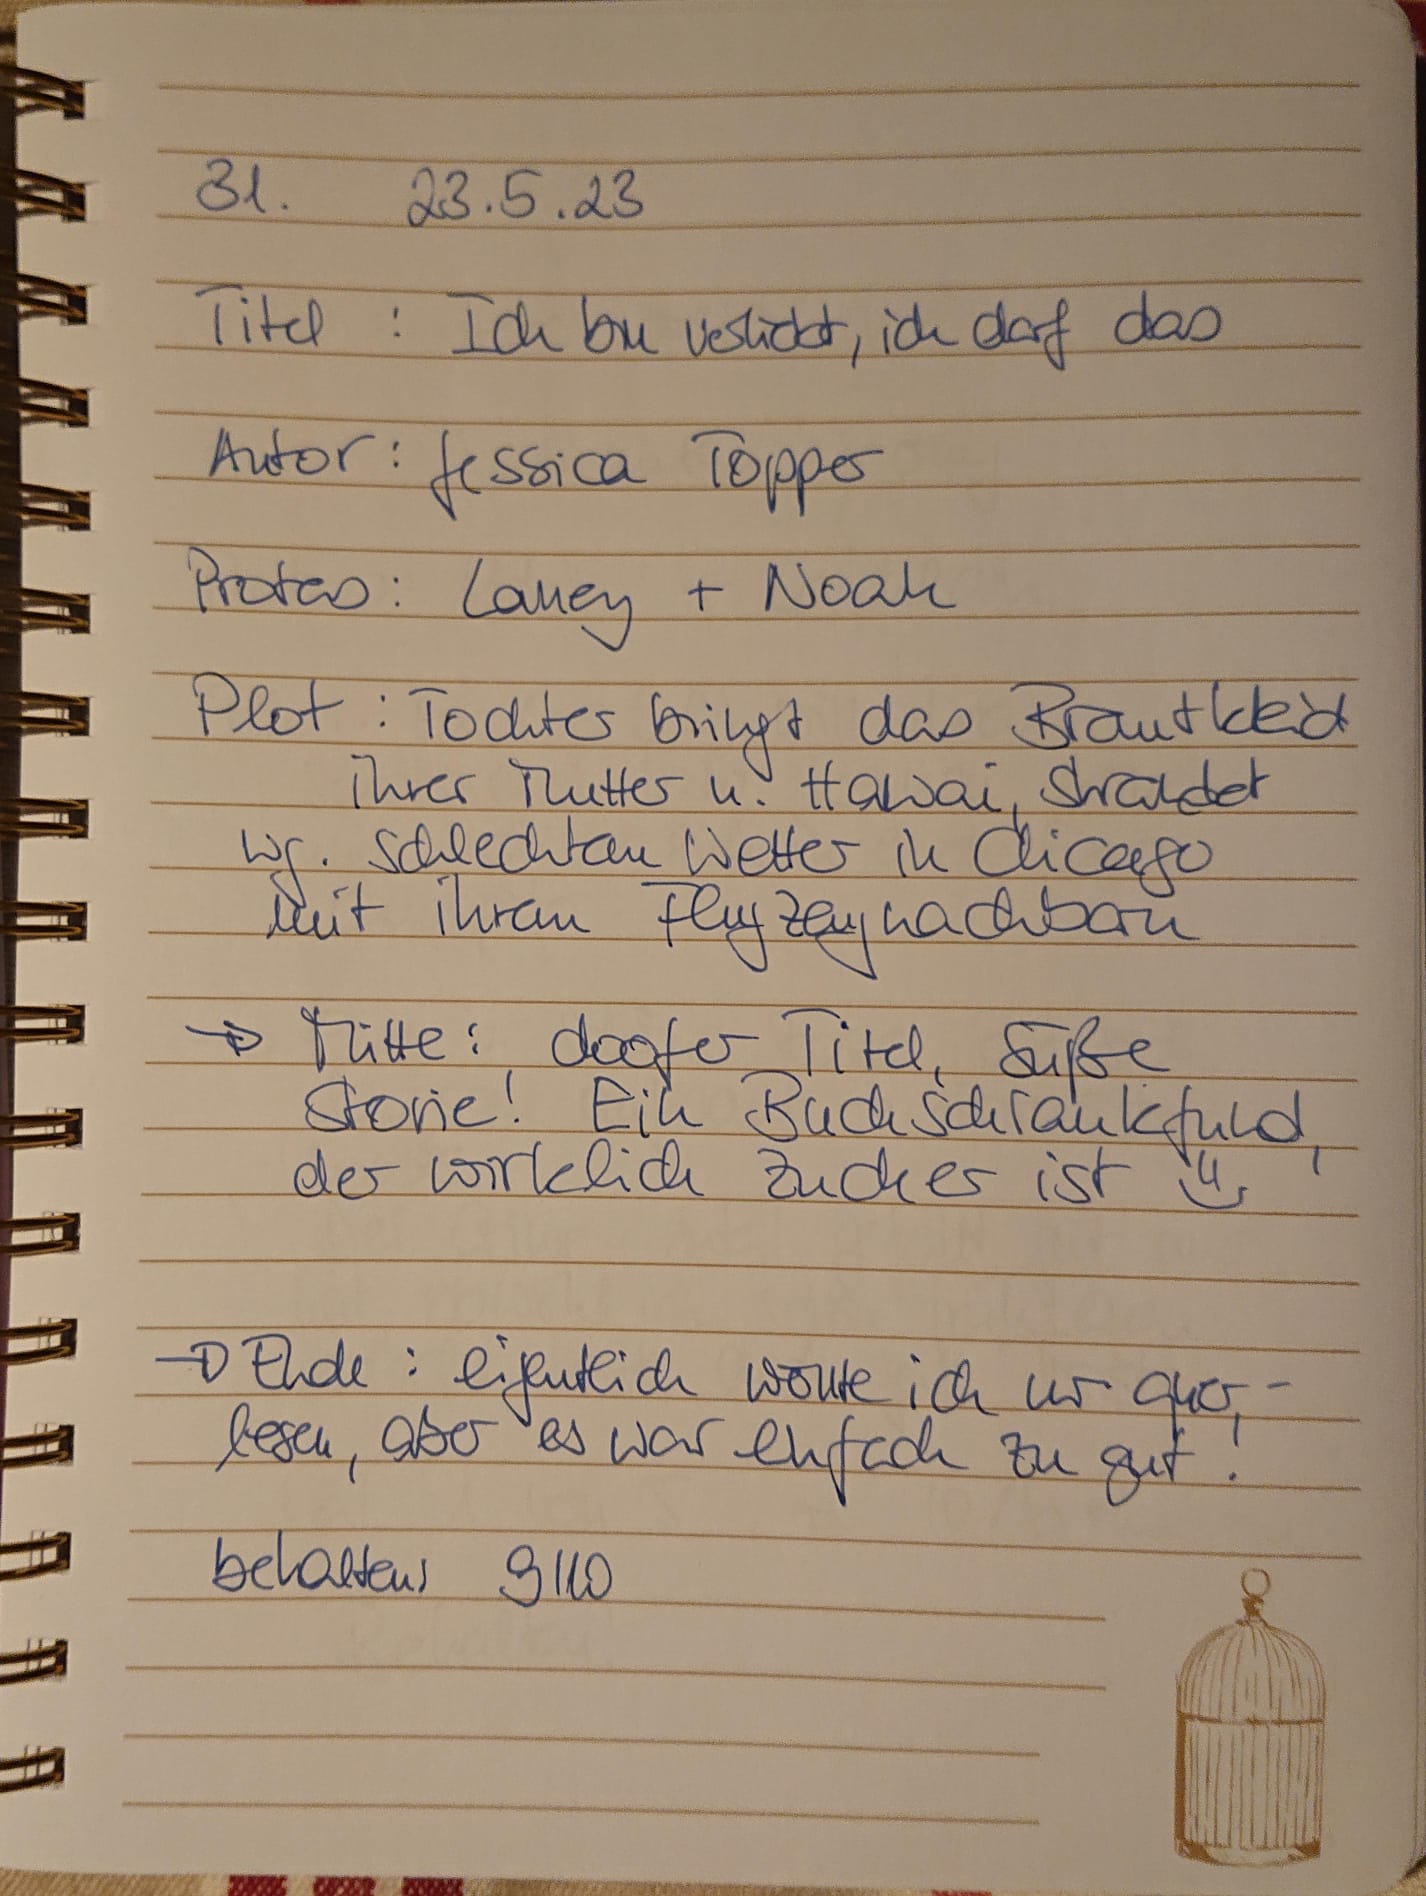 31. 23.5.23
Titel : Ich bin verliebt, ich darf das
Autor: Jessica Topper
Protas: Laney + Noah
Plot : Tochter bringt das Brautkleid
ihrer Mutter n. Hawai, strandet
wg. schlechtem Wetter in Chicago
mit ihrem Flugzeugnachbarn
→ Mitte: doofer Titel, süße
Storie! Ein Buchschrankfund,
der wirklich Zucker ist
→ Ende : eigentlich wollte ich nur quer-
lesen, aber es war einfach zu gut!
behalten! 9/10